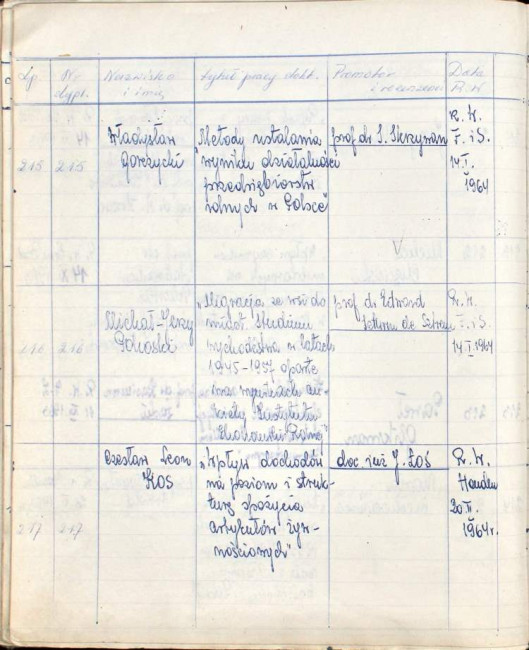 Lp. Nr dypl. Nazwisko i imię tytuł pracy dokt. Promotor i recenzenci Data R.W.
215 215
Władysław
„Metody ustalania
wyniku działalności
przedsiębiorstw
rolnych w Polsce"
prof. dr S.
R. W.
F. i S.
14.I.
1964
216 216
Michał-Jerzy
„Migracja ze wsi do
miast. Studium
wychodźstwa w latach
1945-1957 oparte
na wynikach
ankiety Instytutu
Ekonomiki Rolnej"
prof. dr Edward
R. W.
F. i S.
14.I.1964
217 217
Czesław Leon
Kos
„Wpływ dochodów
na poziom i struk-
turę spożycia
artykułów żyw-
nościowych"
doc. inż. J. Łoś
R. W.
Handlu
1964r.